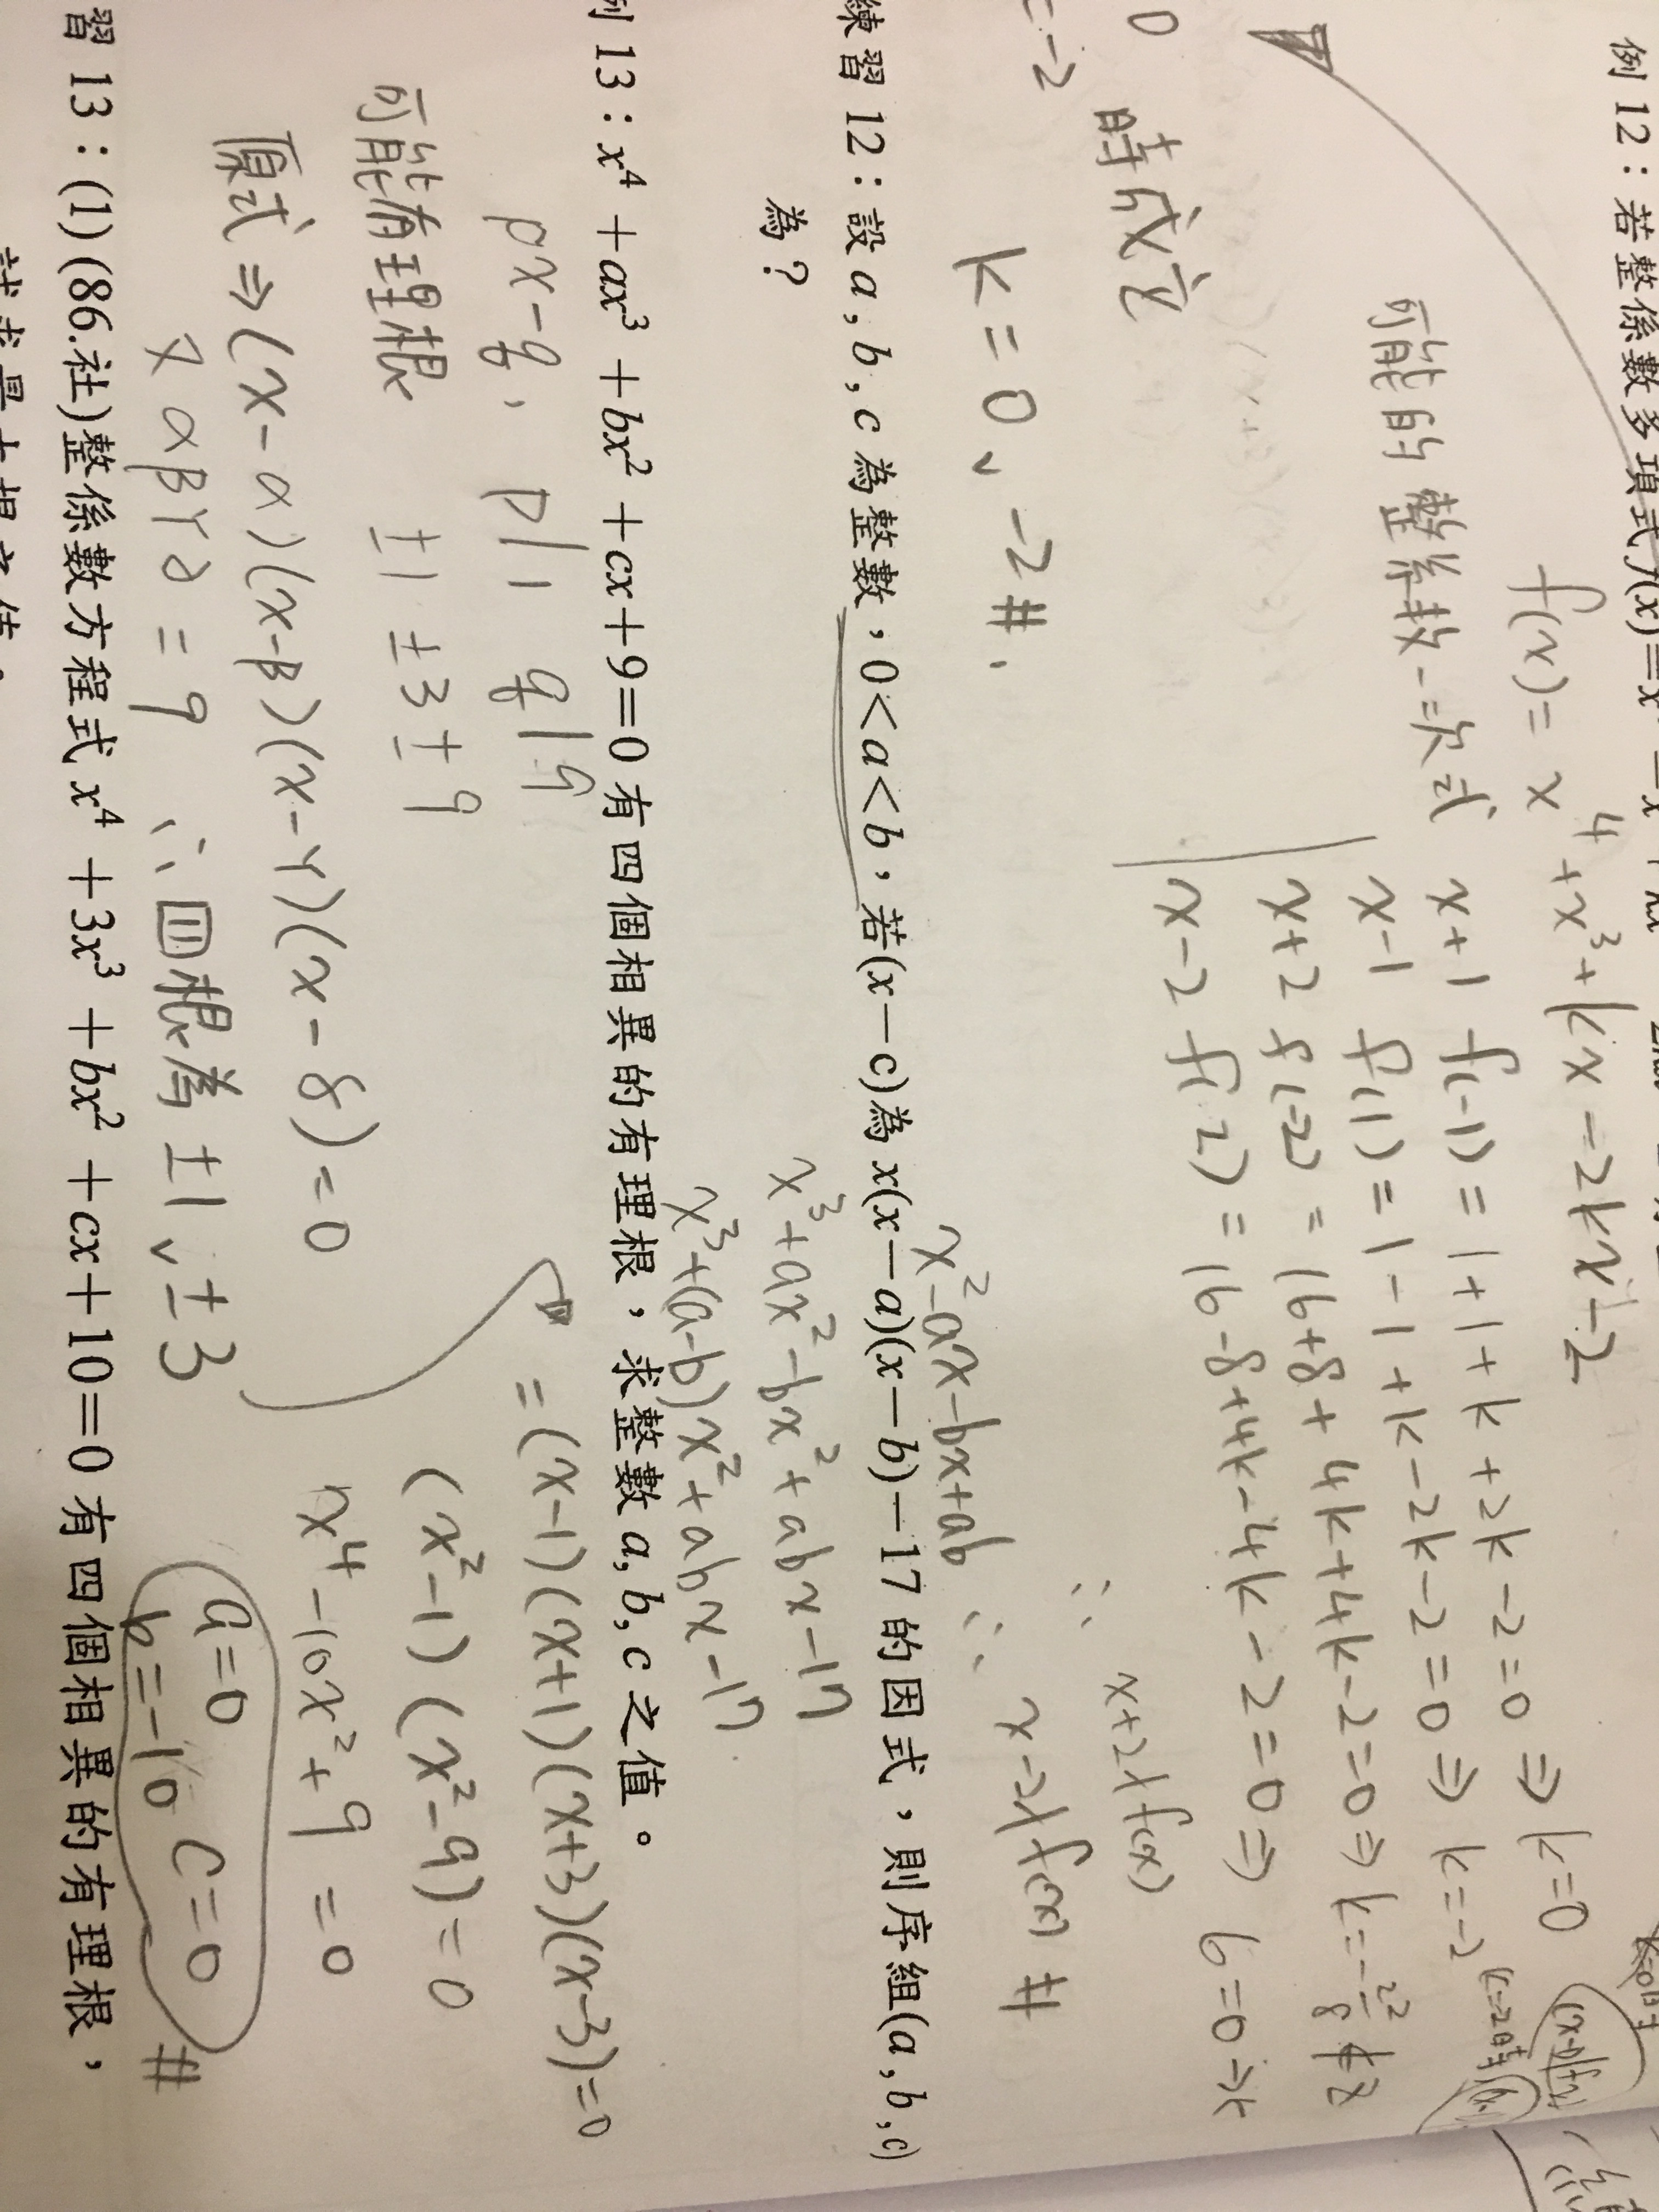 例 12：若整係數多項式 f(x)=x
f(x) = x⁴+x³+kx-2kx-2
可能的整係數一次式
x+1 f(-1) = 1+1+k+2k-2=0 ⇒ k=0
x-1 f(1) = 1-1+k-2k-2=0 ⇒ k=-2
x+2 f(-2) = 16+8+4k+4k-2=0 ⇒ k=-22/8 ∉ Z
x-2 f(2) = 16-8+4k-4k-2=0 ⇒ 6=0
0 時成立
∴ x+2∤f(x)
=-2
k=0、-2 #.
∴ x-2∤f(x) #
練習 12：設 a,b,c 為整數，0<a<b，若(x-c)為 x(x-a)(x-b)-17 的因式，則序組(a,b,c)
為？
x²-ax-bx+ab
x³+ax²-bx²+abx-17
x³+(a-b)x²+abx-17
列 13：x⁴+ax³+bx²+cx+9=0 有四個相異的有理根，求整數 a,b,c 之值。
px-q, p|1 q|9
可能有理根 ±1 ±3 ±9
原式⇒(x-α)(x-β)(x-γ)(x-δ)=0
又 αβγδ=9 ∴四根為 ±1、±3
=(x-1)(x+1)(x+3)(x-3)=0
(x²-1)(x²-9)=0
x⁴-10x²+9=0
a=0
b=-10 c=0 #
習 13：(1)(86.社)整係數方程式 x⁴+3x³+bx²+cx+10=0 有四個相異的有理根，